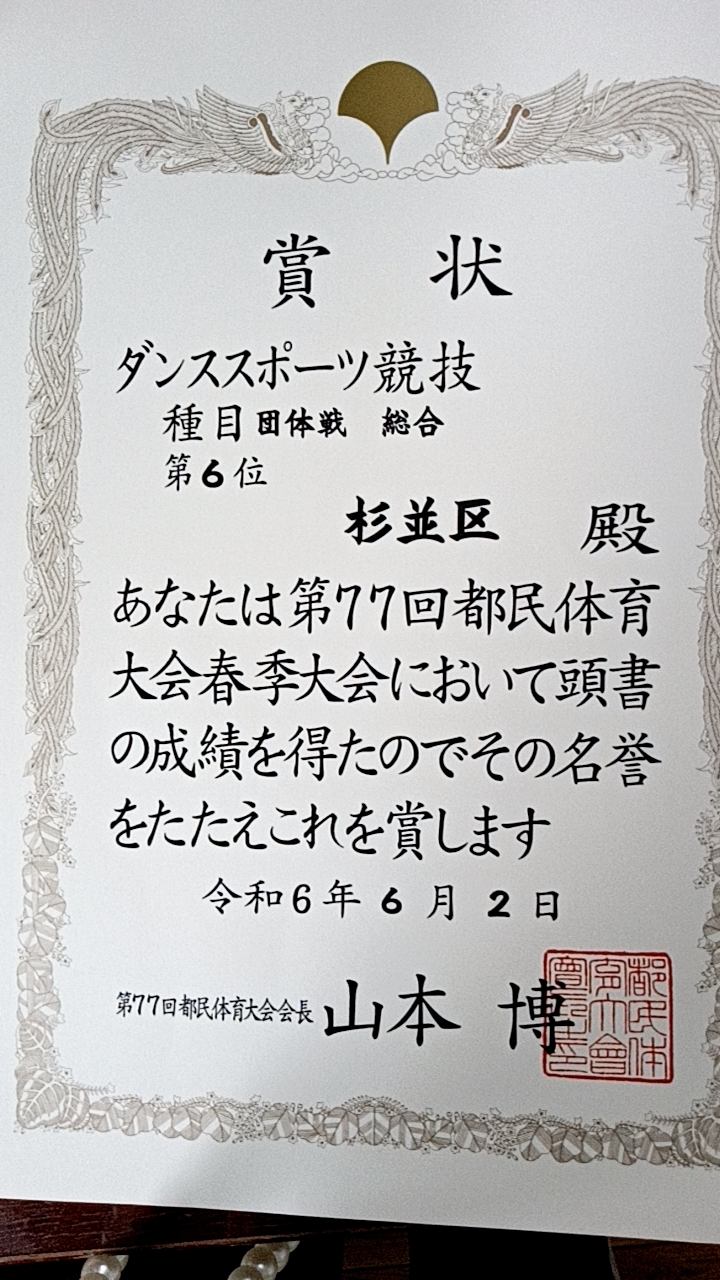 賞状
ダンススポーツ競技
種目 団体戦 総合
第6位
杉並区 殿
あなたは第77回都民体育
大会春季大会において頭書
の成績を得たのでその名誉
をたたえこれを賞します
令和6年6月2日
第77回都民体育大会会長 山本 博